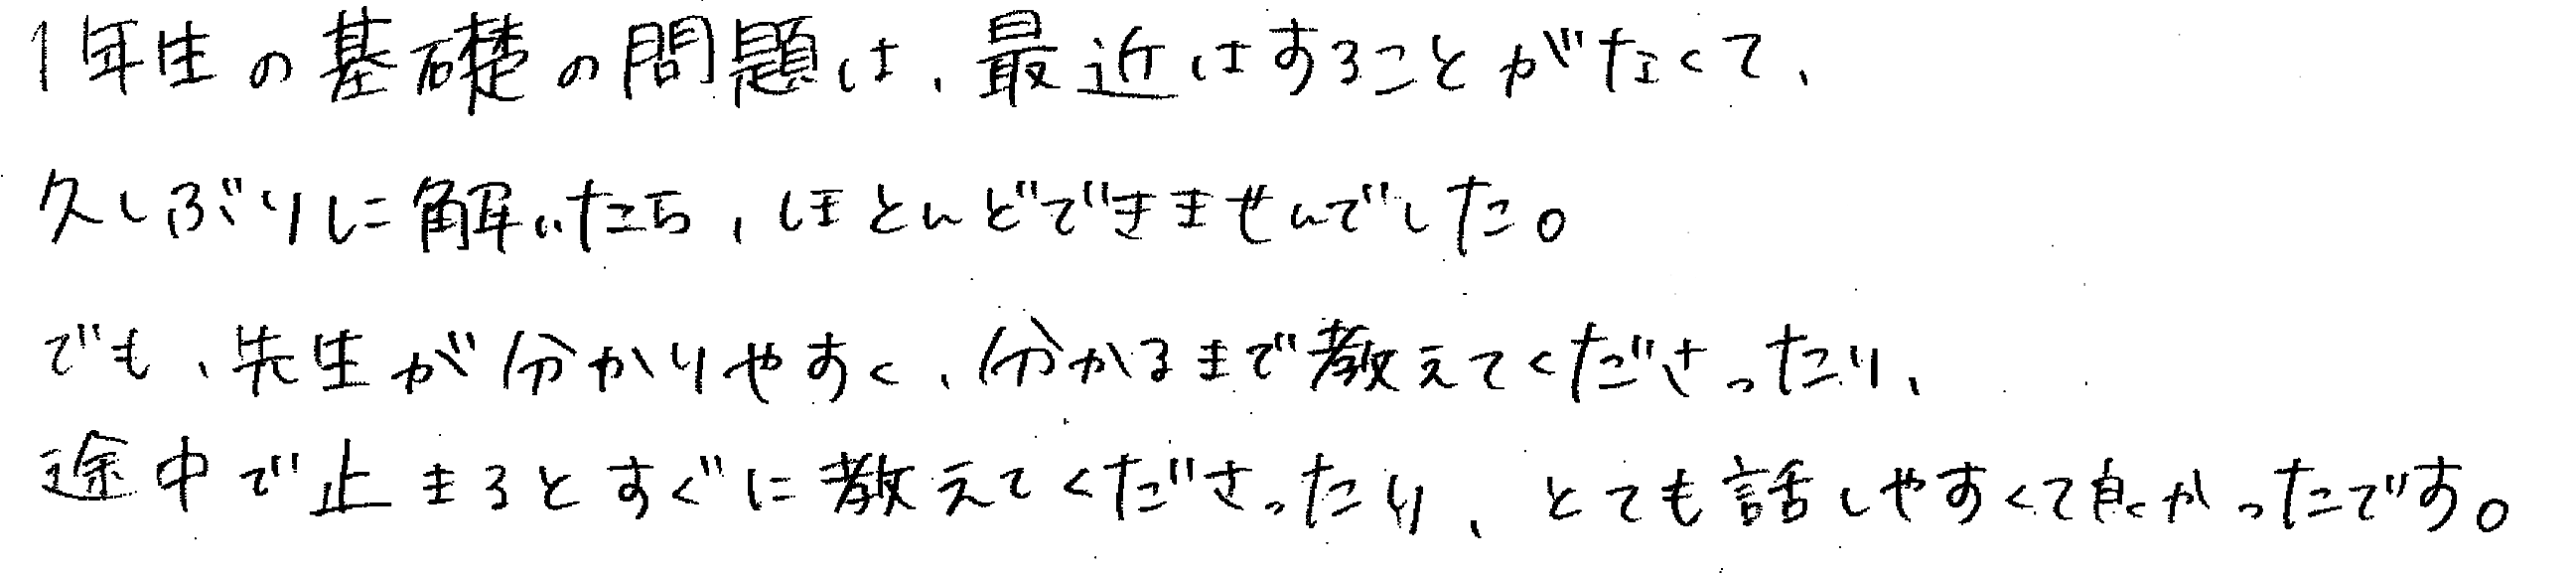 1年生の基礎の問題は、最近はすることがなくて、
久しぶりに解いたら、ほとんどできませんでした。
でも、先生が分かりやすく、分かるまで教えてくださったり、
途中で止まるとすぐに教えてくださったり、とても話しやすくて良かったです。